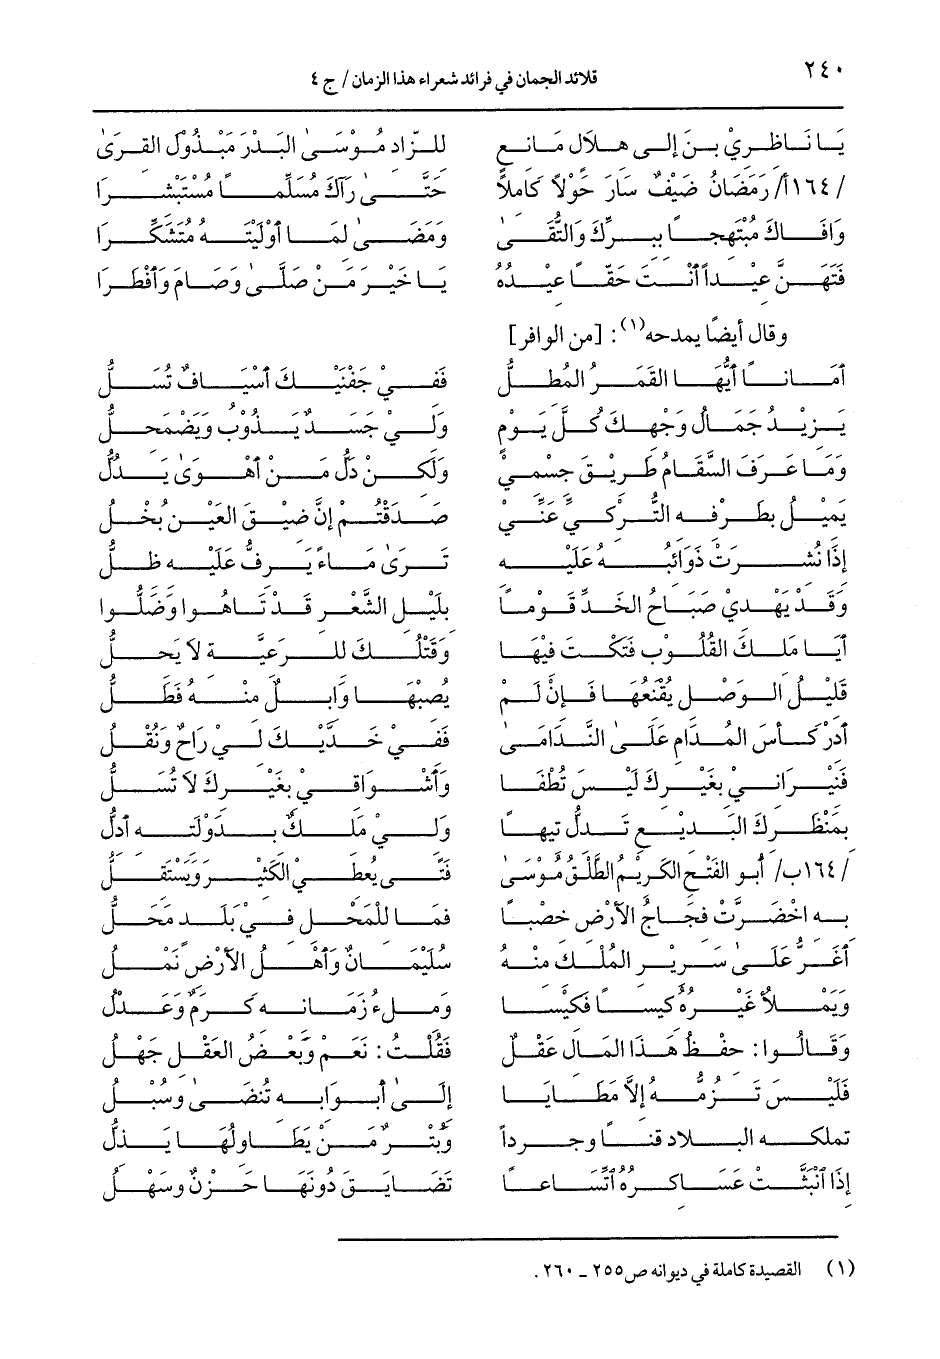 ٢٤٠
قلائد الجمان في فرائد شعراء هذا الزمان / ج ٤
يَا نَاظِرِيْ بِنَ إلى هلال مَانعٍ للزّاد مُوْسَىٰ البَدْرَ مَبْذُولَ القرَىٰ
/١٦٤أ/ رَمَضَانُ ضَيْفٌ سَارَ حَوْلاً كَاملاً حَتَّىٰ رآكَ مُسَلِّماً مُسْتَبْشرَا
وَافَاكَ مُبْتَهِجاً بِبرِّكَ وَالتُّقَىٰ وَمَضَىٰ لمَا أوْلَيْتَهُ مُتَشَكِّرَا
فَتَهَنَّ عِيْداً أنْتَ حَقّاً عيْدُهُ يَا خَيْرَ مَنْ صَلَّىٰ وَصَامَ وَأفْطَرَا
وقال أيضًا يمدحه(١): [من الوافر]
أمَانـاً أيُّهَا القَمَرُ المُطلُّ فَفيْ جَفْنَيْكَ أسْيَافٌ تُسَلُّ
يَزِيْدُ جَمَالُ وَجْهِكَ كُلَّ يَوْمٍ وَليْ جَسَدٌ يَذُوْبُ وَيَضْمَحلُّ
وَمَا عَرَفَ السَّقَامُ طَرِيْقَ جِسْميْ وَلَكنْ دَلُّ مَنْ أهْوَىٰ يَدُلُّ
يَمِيْلُ بطَرْفه التُّرْكيِّ عَنِّيْ صَدَقْتُمْ إنَّ ضيْقَ العَيْن بُخْلُ
إذَا نُشرَتْ ذَوَائبُهُ عَلَيْه تَرَىٰ مَاءً يَرفُّ عَلَيْه ظلُّ
وَقَدْ يَهْديْ صَبَاحُ الخَدِّ قَوْماً بلَيْل الشَّعْر قَدْ تَاهُوا وَضَلُّوا
أيَا مَلكَ القُلُوْب فَتَكْتَ فيْهَا وَقَتْلُكَ للرَعيَّة لاَ يَحلُّ
قَليْلُ الوَصْل يُقْنعُهَا فَإنْ لَمْ يُصبْهَا وَابلٌ منْهُ فَطَلُّ
أدرْ كَأسَ المُدَامِ عَلَىٰ النَّدَامَىٰ فَفيْ خَدَّيْكَ ليْ رَاحٌ وَنُقْلُ
فَنيْرَانيْ بغَيْرِكَ لَيْسَ تُطْفَا وَأشْوَاقيْ بغَيْرِكَ لاَ تُسَلُّ
بمَنْظَرِكَ البَديْع تَدلُّ تيهاً وَليْ مَلكٌ بدَوْلَته أدلُّ
/١٦٤ب/ أبو الفَتْح الكَرِيْمُ الطَّلْقُ مُوْسَىٰ فَتًى يُعْطيْ الكَثيْرَ وَيَسْتَقلُّ
به اخْضَرَّتْ فجَاجُ الأرْض خصْباً فمَا للمَحْل فيْ بَلَد مَحَلُّ
أغَرُّ عَلَىٰ سَرِيْرِ المُلْك منْهُ سُلَيْمَانٌ وَأهْلُ الأرْض نَمْلُ
وَيَمْلأُ غَيْرُهُ كيْساً فَكيْسا وَملءُ زَمَانه كَرَمٌ وَعَدْلُ
وَقَالُوا: حفْظُ هَذَا المَال عَقْلٌ فَقُلْتُ: نَعَمْ وَبَعْضُ العَقْل جَهْلُ
فَلَيْسَ تَزُمُّهُ إلاَّ مَطَايَا إلَىٰ أبْوَابه تُنْضَىٰ وسُبْلُ
تملكه البلاد قناً وجرداً وَبُتْرٌ مَنْ يَطَاولُهَا يَذلُّ
إذَا انْبَثَّتْ عَسَاكرُهُ اتِّسَاعاً تَضَايَقَ دُونَهَا حَزْنٌ وَسَهْلُ
(١) القصيدة كاملة في ديوانه ص٢٥٥ - ٢٦٠.